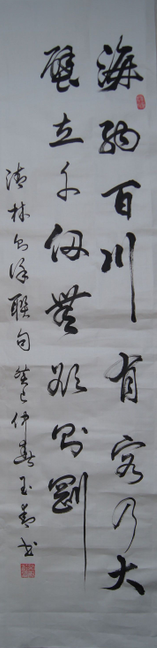 海納百川有容乃大
壁立千仞無欲則剛
清林則徐聯句癸巳仲春玉書